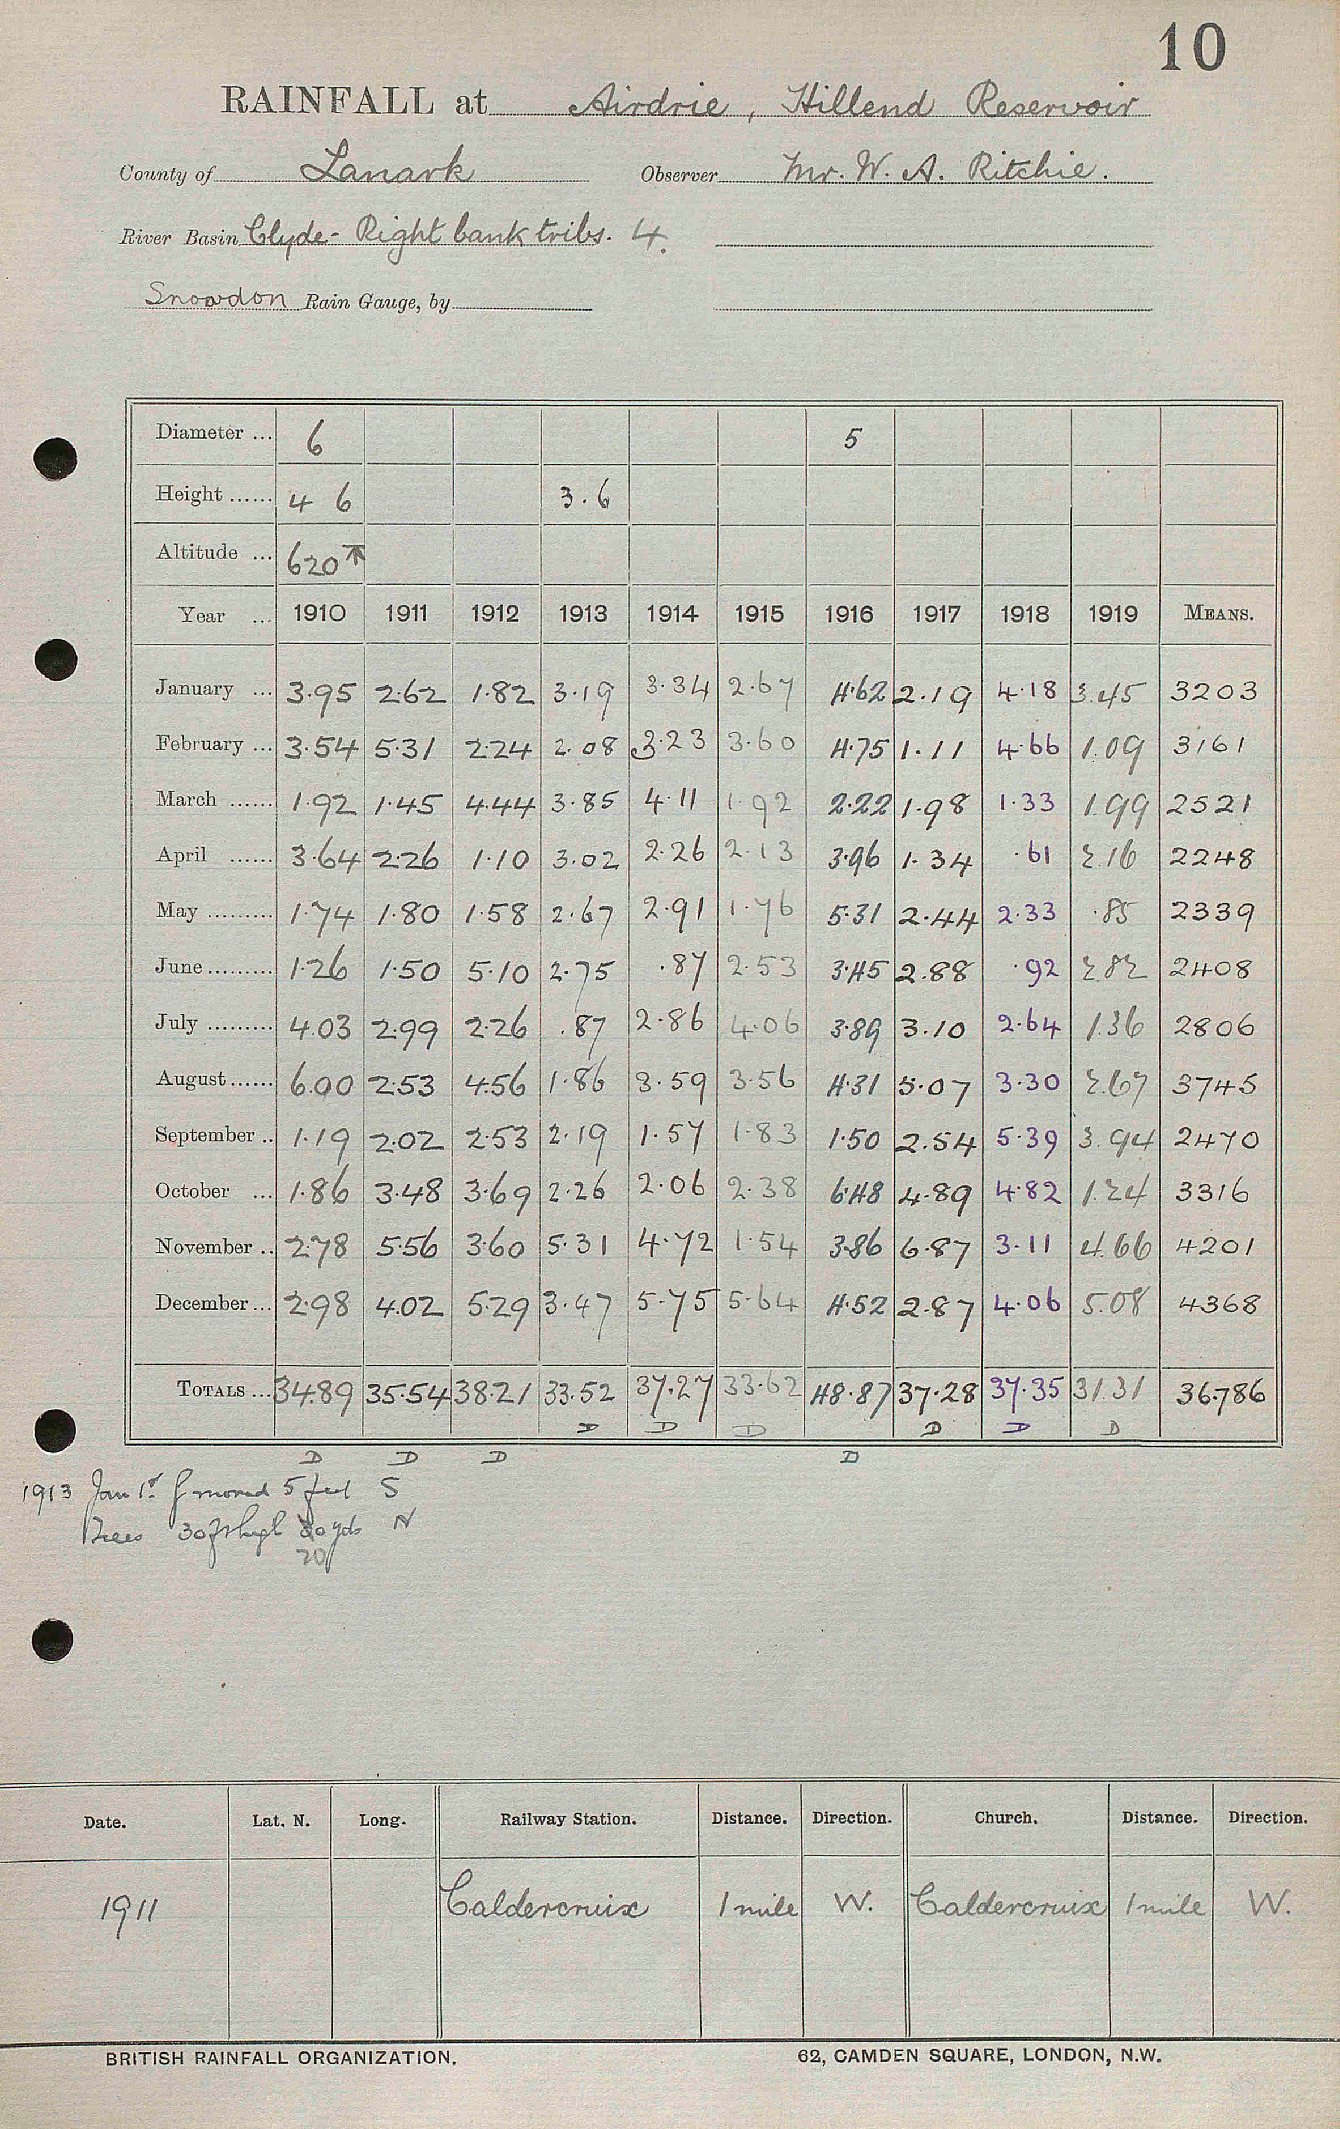 10
RAINFALL at Airdrie, Hillend Reservoir
County of Lanark Observer Mr. W. A. Ritchie.
River Basin Clyde - Right bank tribs. 4.
Snowdon Rain Gauge, by
Diameter ... 6 5
Height ...... 4 6 3.6
Altitude ... 620
Year ... 1910 1911 1912 1913 1914 1915 1916 1917 1918 1919 MEANS.
January ... 3.95 2.62 1.82 3.19 3.34 2.67 4.62 2.19 4.18 3.45 3203
February ... 3.54 5.31 2.24 2.08 3.23 3.60 4.75 1.11 4.66 1.09 3161
March ...... 1.92 1.45 4.44 3.85 4.11 1.92 2.22 1.98 1.33 1.99 2521
April ...... 3.64 2.26 1.10 3.02 2.26 2.13 3.96 1.34 .61 2.16 2248
May ......... 1.74 1.80 1.58 2.67 2.91 1.76 5.31 2.44 2.33 .85 2339
June ......... 1.26 1.50 5.10 2.75 .87 2.53 3.45 2.88 .92 2.82 2408
July ......... 4.03 2.99 2.26 .87 2.86 4.06 3.89 3.10 2.64 1.36 2806
August ...... 6.00 2.53 4.56 1.86 3.59 3.56 4.31 5.07 3.30 2.67 3745
September .. 1.19 2.02 2.53 2.19 1.57 1.83 1.50 2.54 5.39 3.94 2470
October ... 1.86 3.48 3.69 2.26 2.06 2.38 6.48 4.89 4.82 1.24 3316
November .. 2.78 5.56 3.60 5.31 4.72 1.54 3.86 6.87 3.11 4.66 4201
December ... 2.98 4.02 5.29 3.47 5.75 5.64 4.52 2.87 4.06 5.08 4368
TOTALS ... 34.89 35.54 38.21 33.52 37.27 33.62 48.87 37.28 37.35 31.31 36.786
D D D D D D
D D D D
1913 Jan 1st. moved 5 feet S
Trees 30 ft high yds N
20
Date. Lat. N. Long. Railway Station. Distance. Direction. Church. Distance. Direction.
1911 Caldercruix 1 mile W. Caldercruix 1 mile W.
BRITISH RAINFALL ORGANIZATION. 62, CAMDEN SQUARE, LONDON, N.W.